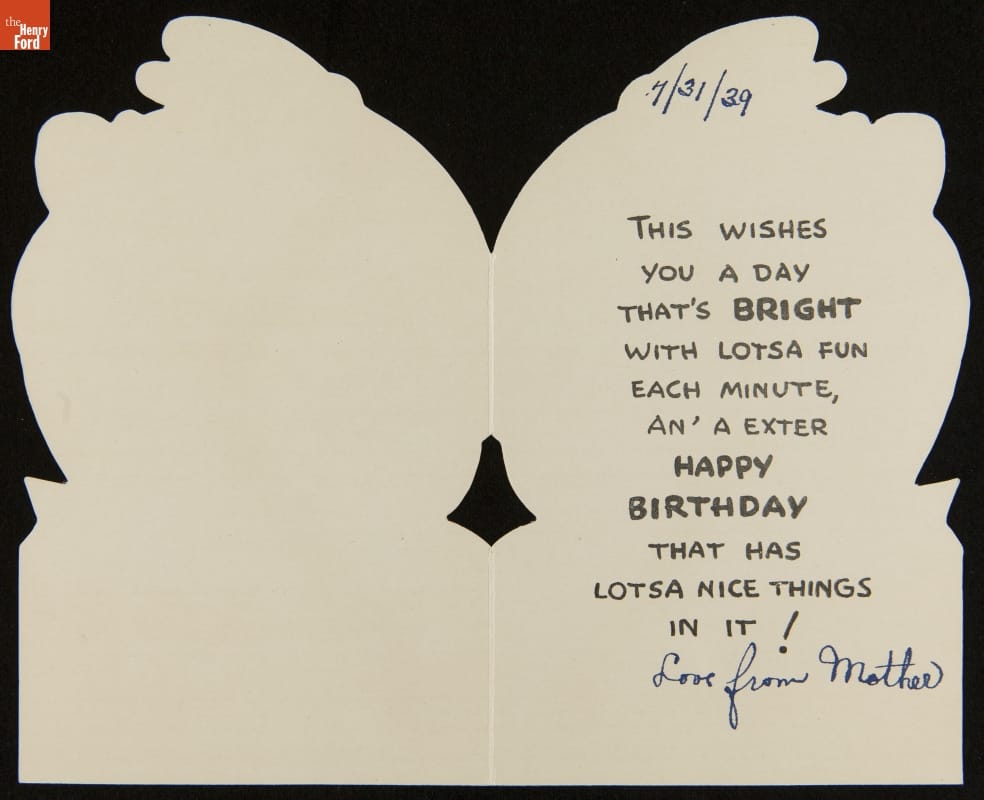 the
Henry
Ford
7/31/39
THIS WISHES
YOU A DAY
THAT'S BRIGHT
WITH LOTSA FUN
EACH MINUTE,
AN' A EXTER
HAPPY
BIRTHDAY
THAT HAS
LOTSA NICE THINGS
IN IT!
Love from Mother